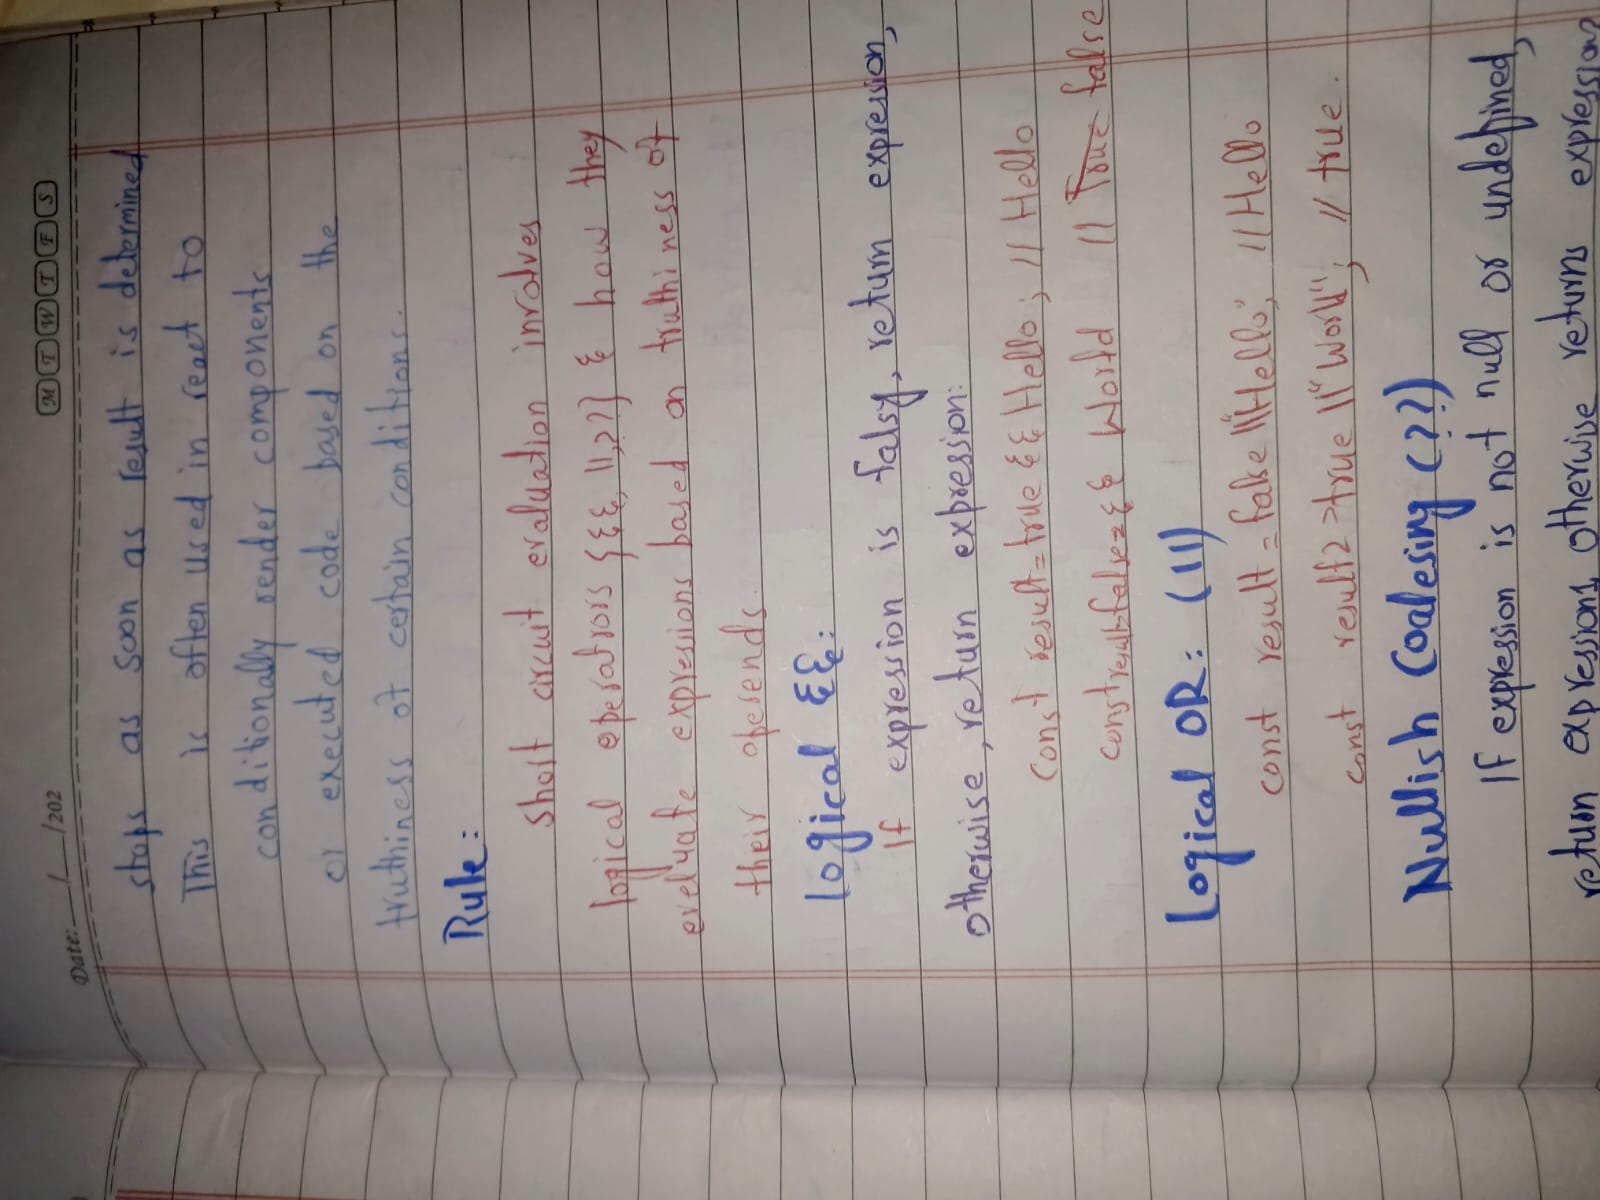 Date: __/__/202
M T W T F S
stops as soon as result is determined
This is often used in react to
conditionally render components
or executed code based on the
truthiness of certain conditions.
Rule:
short circuit evaluation involves
logical operatrors {&&, ||, ??} & how they
eveluate expressions based on truthiness of
their operends.
Logical &&:
If expression is falsy, return expression,
Otherwise, return expression:
Const result = true && Hello; // Hello
const result=false=&& World // True false
Logical OR: (||)
const result = false ||"Hello"; // Hello
const result2 = true ||"World"; // true.
Nullish Coalesing (??)
If expression is not null or undefined,
return expression, otherwise returns expression2